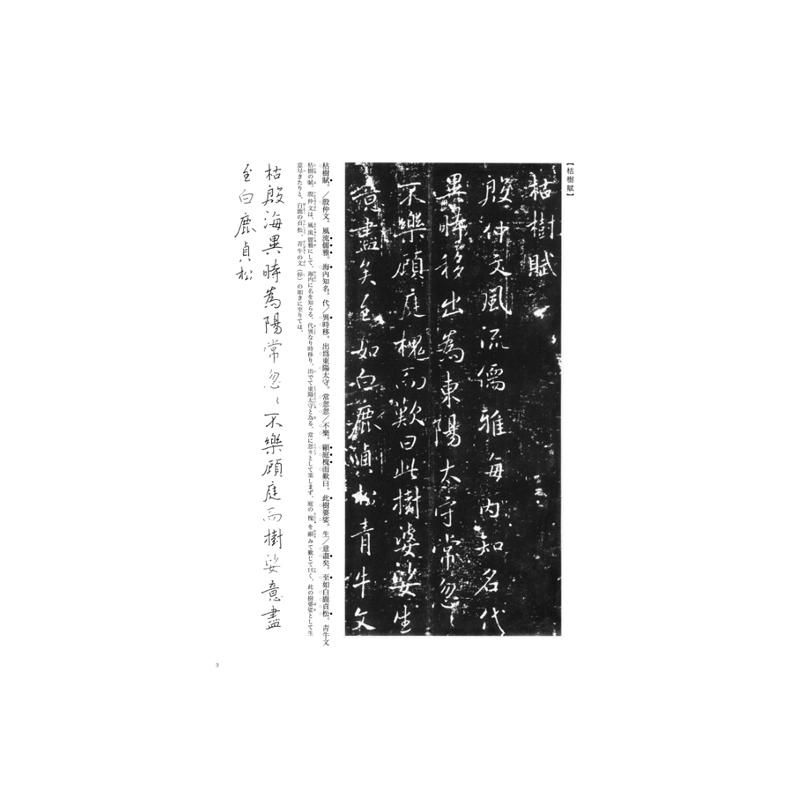 【枯樹賦】
枯樹賦
殷仲文風流儒雅海内知名代
異時移出為東陽太守常忽〻
不樂顧庭槐而歎曰此樹婆娑生
意盡矣至如白鹿貞松青牛文
枯樹賦。／殷仲文、風流儒雅、海内知名。代／異時移、出爲東陽太守。常忽忽／不樂、顧庭槐而歎曰、此樹婆娑、生／意盡矣。至如白鹿貞松、青牛文
枯樹の賦。殷仲文は、風流儒雅にして、海内に名を知らる。代異なり時移り、出でて東陽太守と為る。常に忽々として楽しまず、庭の槐を顧みて歎じて曰く、此の樹婆娑として生
意尽きたりと。白鹿の貞松、青牛の文（梓）の如きに至りては、
枯殷海異時為陽常忽〻不樂顧庭而樹娑意盡
至白鹿貞松
3